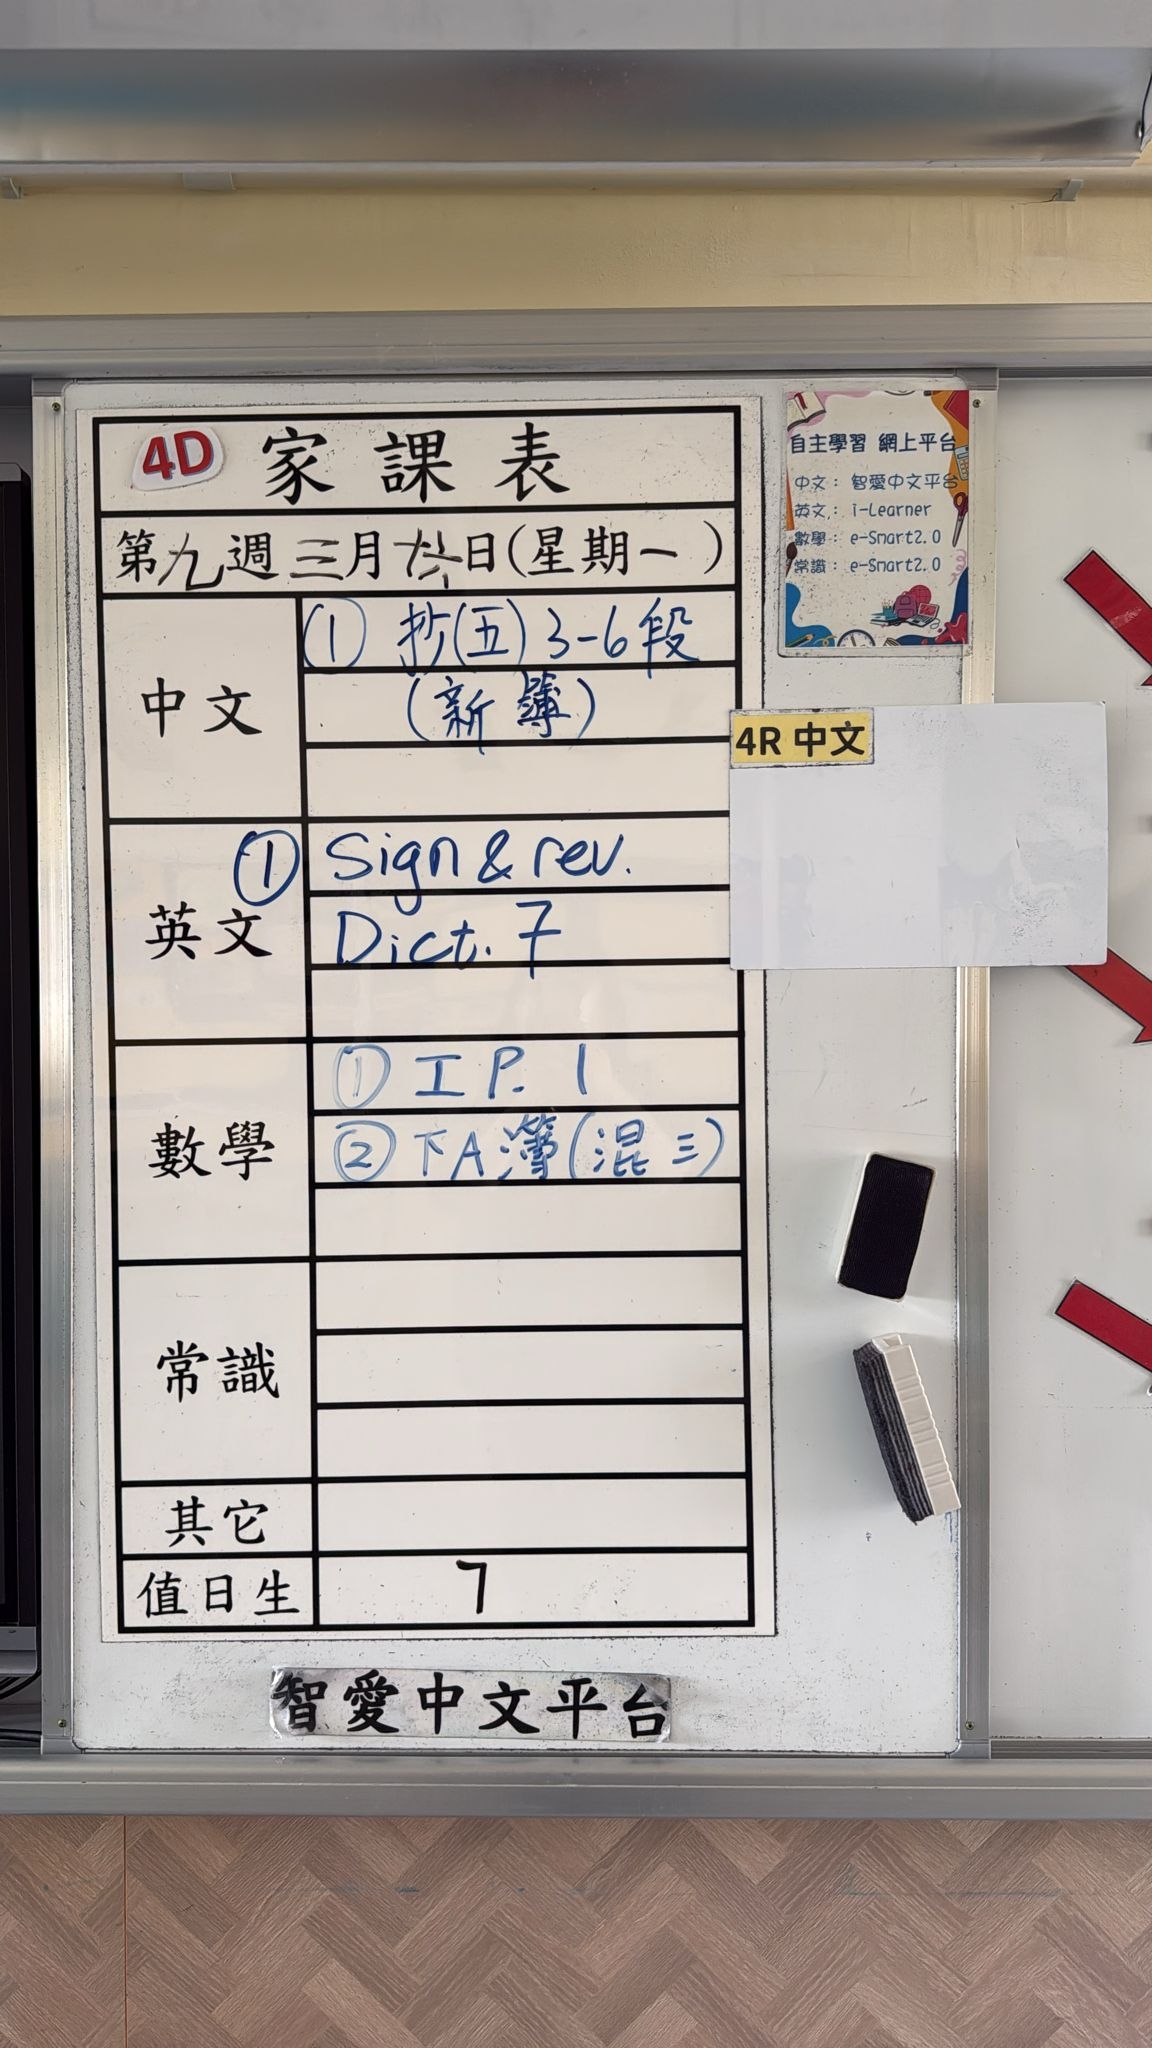 4D 家課表
第九週三月十六日(星期一)
中文
(1) 抄(五)3-6段
(新簿)
英文
① Sign & rev.
Dict. 7
數學
① 工 P. 1
② 下A簿(混三)
常識
其它
值日生 7
智愛中文平台
自主學習 網上平台
中文: 智愛中文平台
英文: i-Learner
數學: e-Smart2.0
常識: e-Smart2.0
4R 中文